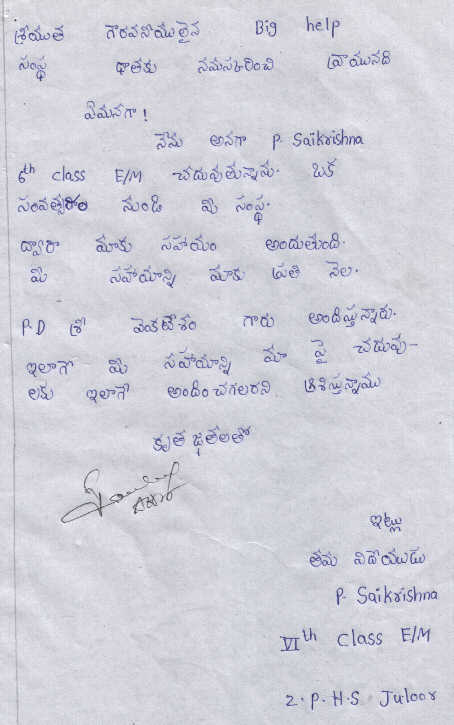 శ్రీయుత గౌరవనీయులైన Big help
సంస్థ దాతకు నమస్కరించి వ్రాయునది
ఏమనగా!
నేను అనగా P. Saikrishna
6th class E/M చదువుతున్నాను. ఒక
సంవత్సరం నుండి మీ సంస్థ.
ద్వారా మాకు సహాయం అందుతుంది.
మీ సహాయాన్ని మాకు ప్రతి నెల.
P.D శ్రీ వెంకటేశం గారు అందిస్తున్నారు.
ఇలాగే మీ సహాయాన్ని మా పై చదువు-
లకు ఇలాగే అందించగలరని ఆశిస్తున్నాము
కృతజ్ఞతలతో
ఇట్లు
తమ విదేయుడు
P. Saikrishna
VIth class E/M
Z.P.H.S. Juloor